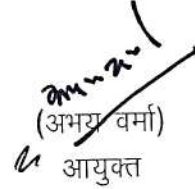 (अभय वर्मा)
आयुक्त